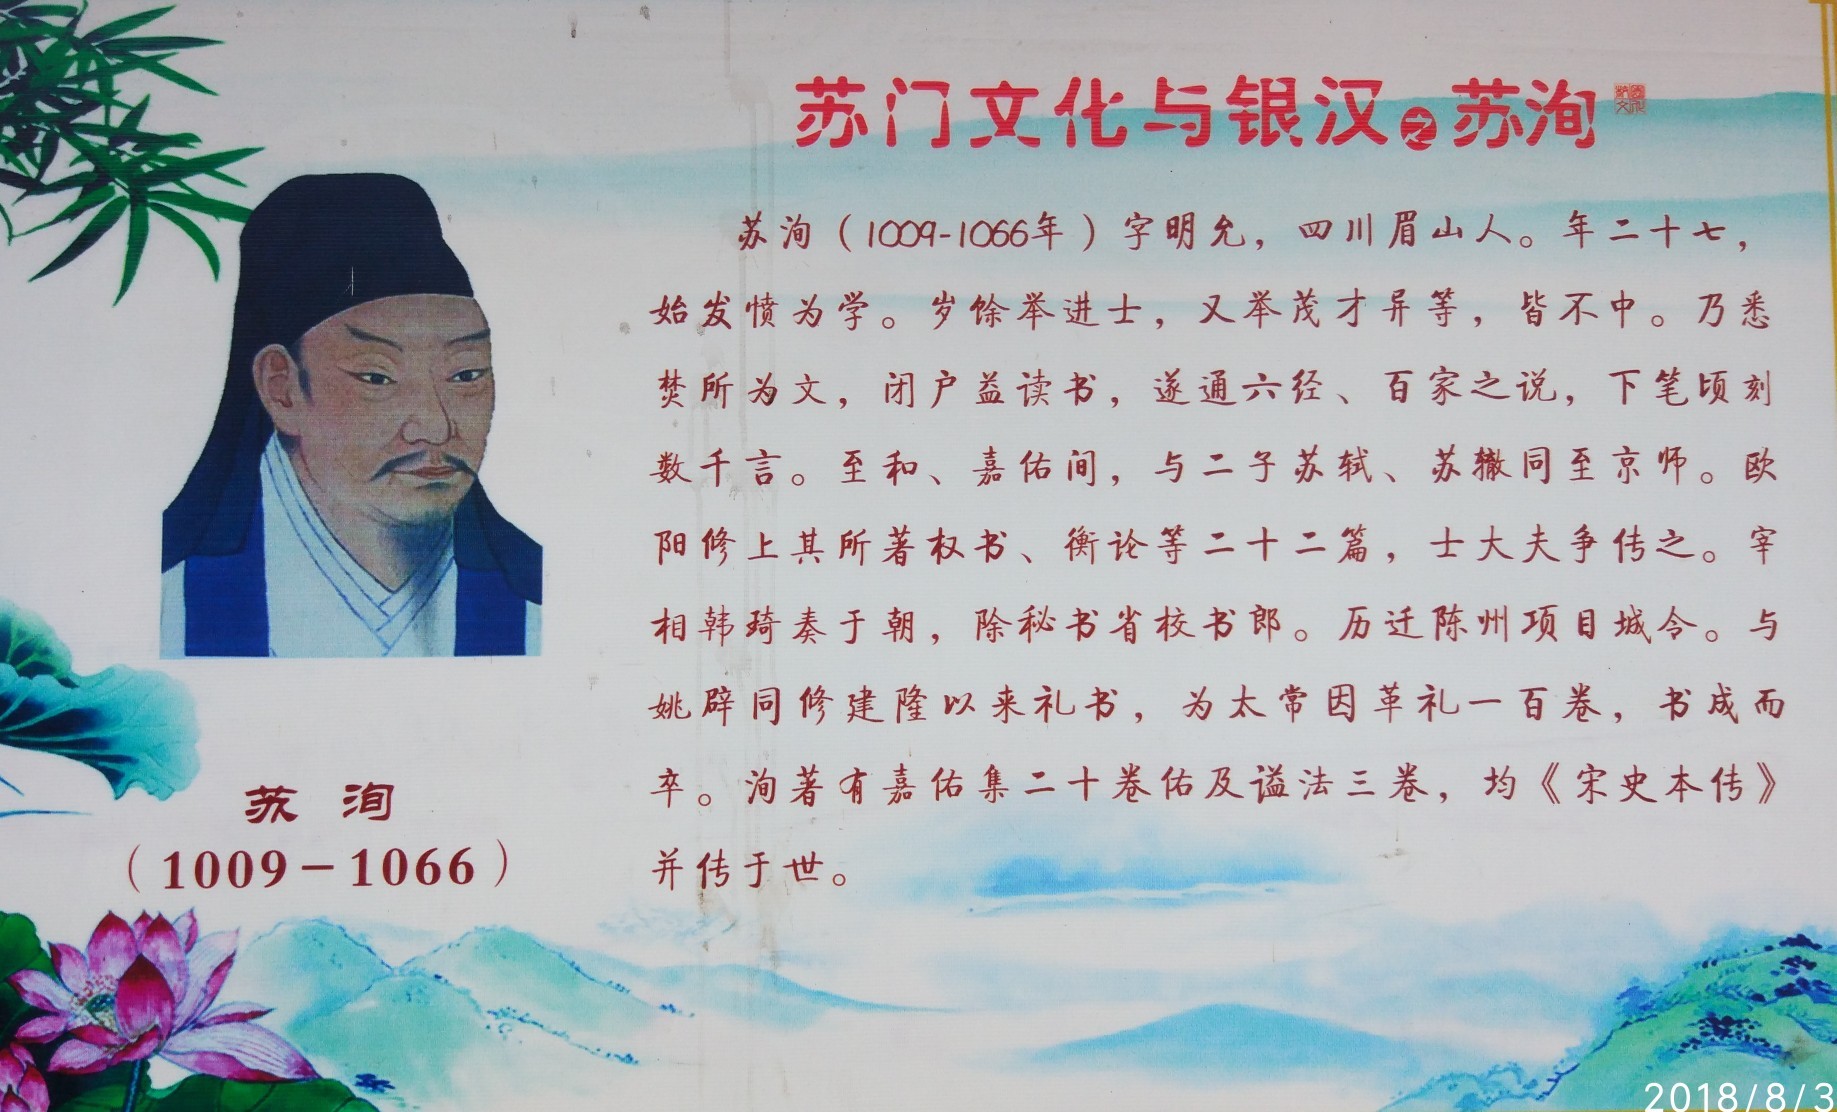 苏门文化与银汉之苏洵
苏洵（1009-1066年）字明允，四川眉山人。年二十七，
始发愤为学。岁馀举进士，又举茂才异等，皆不中。乃悉
焚所为文，闭户益读书，遂通六经、百家之说，下笔顷刻
数千言。至和、嘉佑间，与二子苏轼、苏辙同至京师。欧
阳修上其所著权书、衡论等二十二篇，士大夫争传之。宰
相韩琦奏于朝，除秘书省校书郎。历迁陈州项目城令。与
姚辟同修建隆以来礼书，为太常因革礼一百卷，书成而
卒。洵著有嘉佑集二十卷佑及谥法三卷，均《宋史本传》
并传于世。
苏 洵
（1009－1066）
2018/8/3